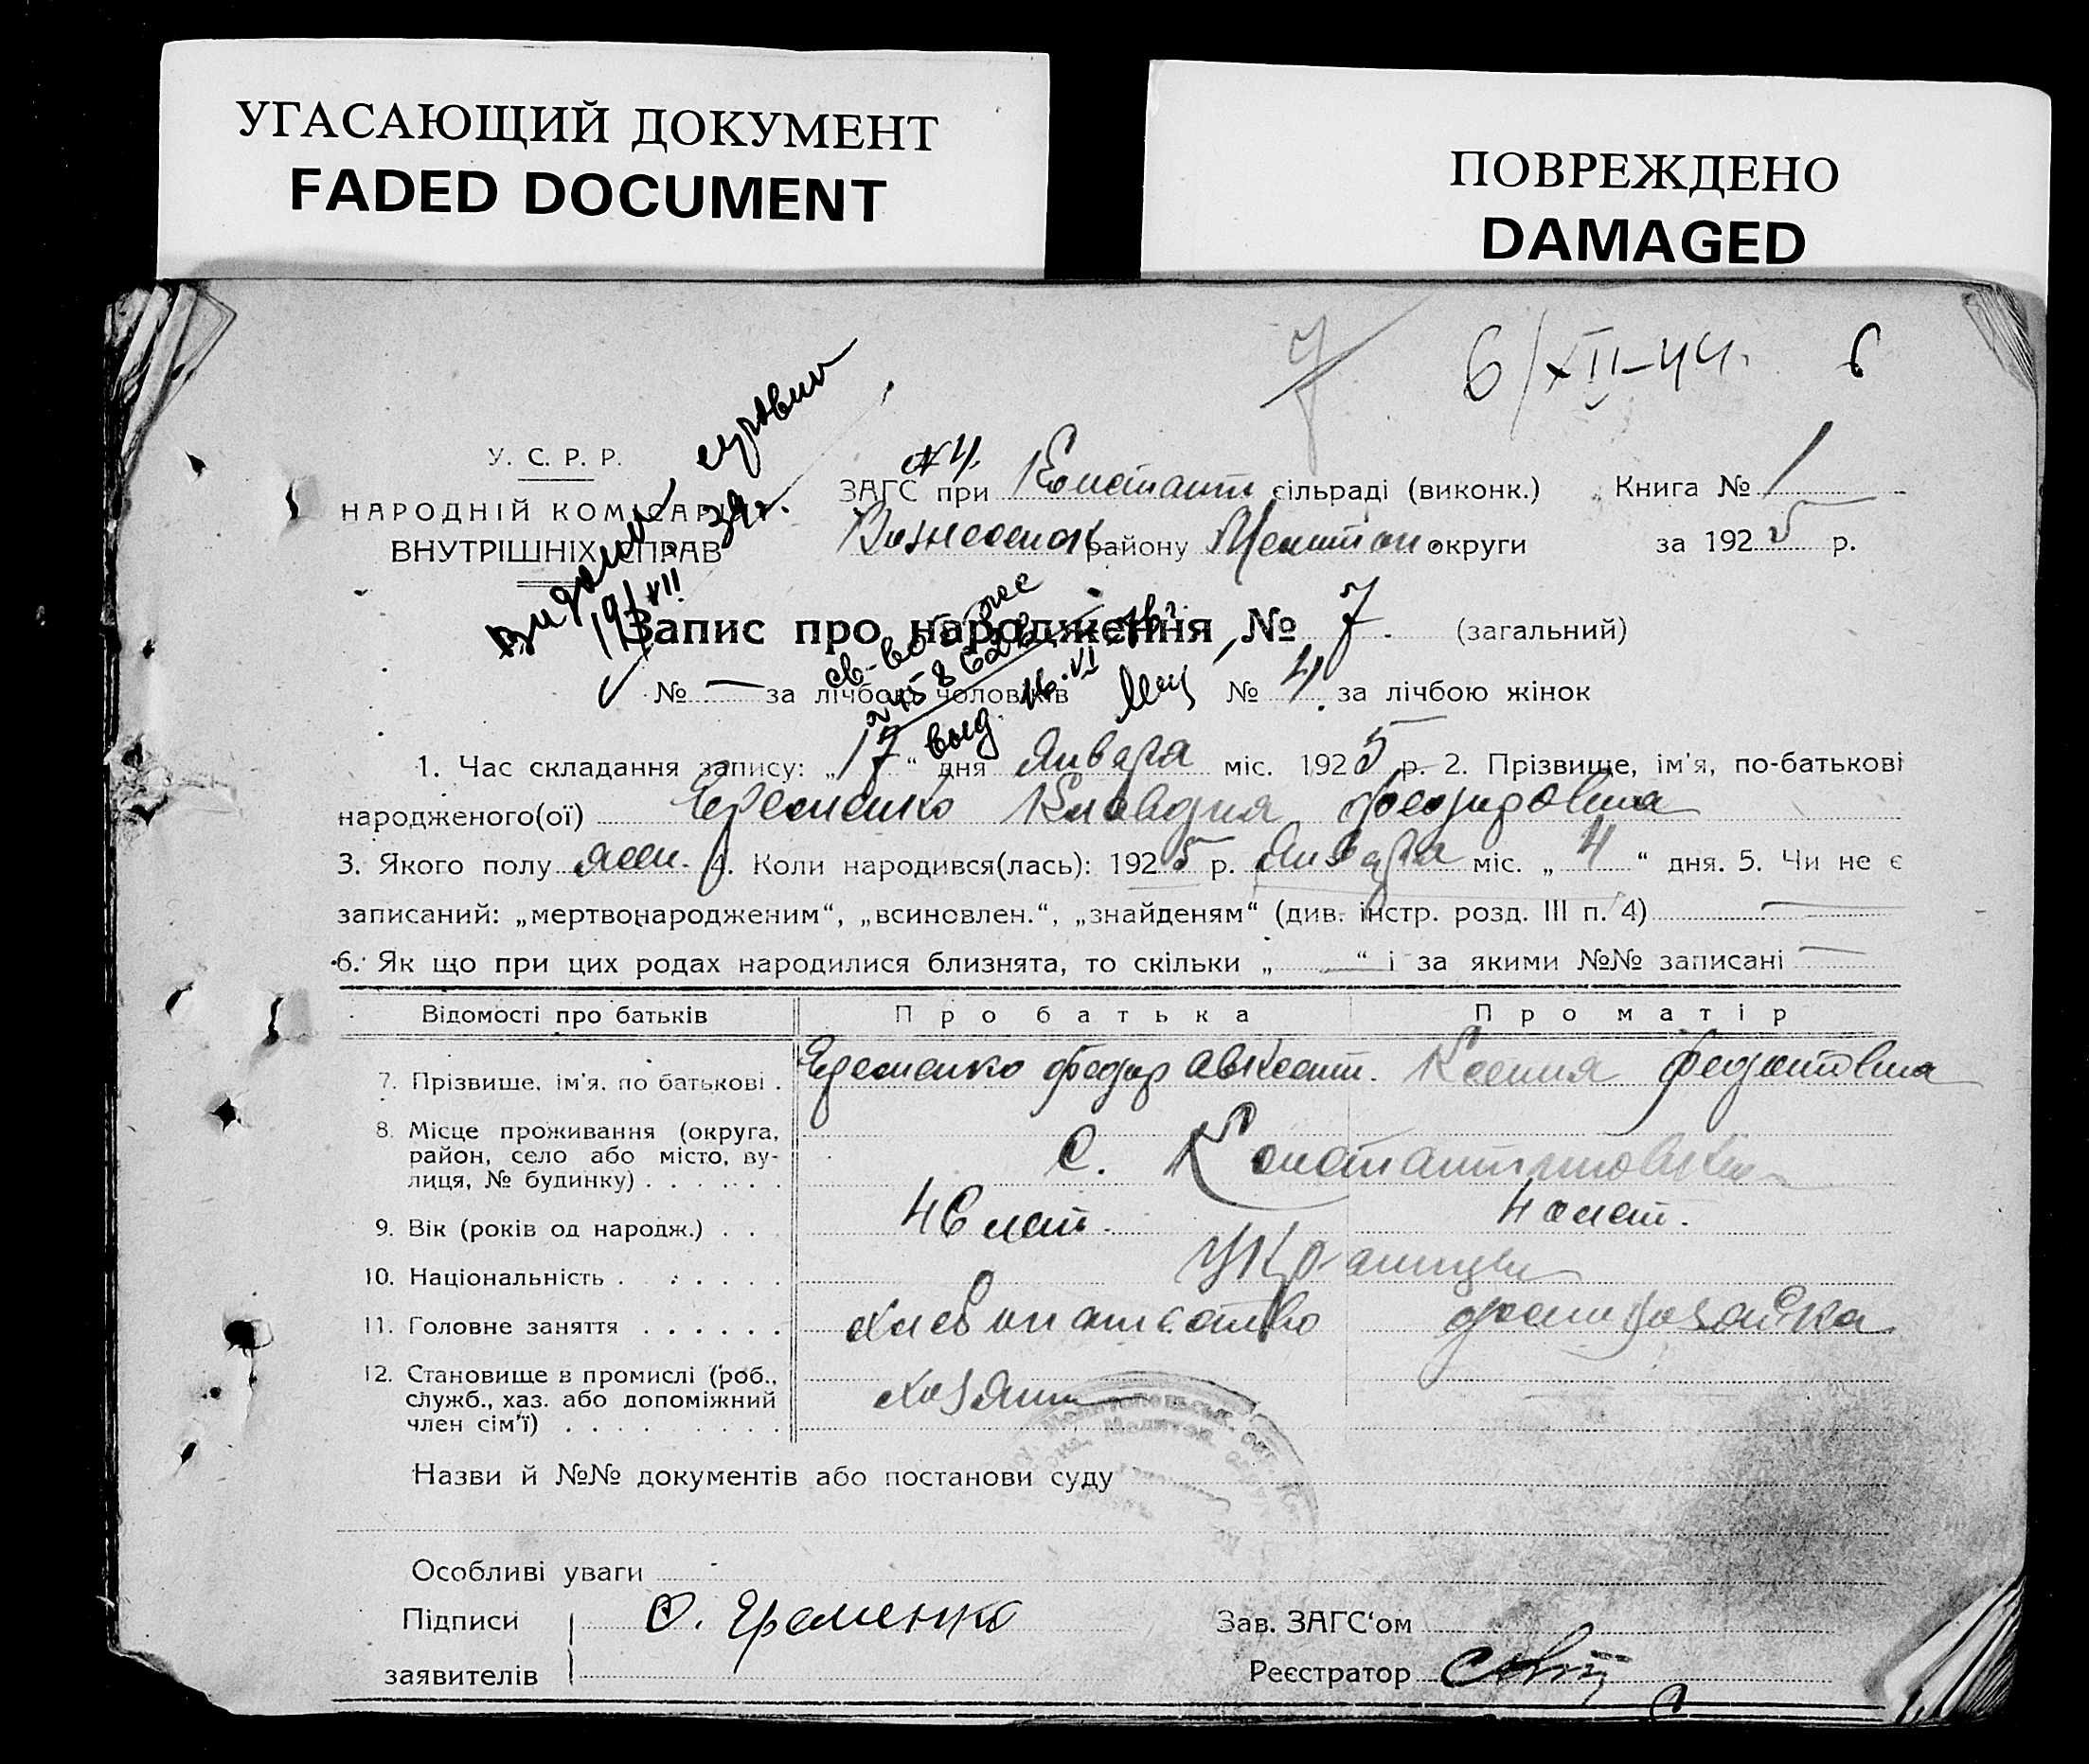 УГАСАЮЩИЙ ДОКУМЕНТ
FADED DOCUMENT
ПОВРЕЖДЕНО
DAMAGED
7
6/XII-44г. 6
У. С. Р. Р.
НАРОДНІЙ КОМІСАРІЯТ
ВНУТРІШНІХ СПРАВ
ЗАГС при Констант сільраді (виконк.) Книга № 1
району округи за 1925 р.
19/VII 39г.
Запис про народження № 7. (загальний)
№ — за лічбою чоловіків № 4. за лічбою жінок
выд. 16.VI
1. Час складання запису: „17“ дня Января міс. 1925 р. 2. Прізвище, ім'я, по-батькові
народженого(ої) Еременко Клавдия Феодоровна
3. Якого полу жен. 4. Коли народився(лась): 1925 р. Января міс. „4“ дня. 5. Чи не є
записаний: „мертвонародженим“, „всиновлен.“, „знайденям“ (див. інстр. розд. III п. 4) —
6. Як що при цих родах народилися близнята, то скільки „ — “ і за якими №№ записані —
Відомості про батьків Про батька Про матір
7. Прізвище, ім'я, по батькові . Еременко Федор Авксент. Ксения Федотовна
8. Місце проживання (округа,
район, село або місто, ву-
лиця, № будинку) . . . . . . с. Константиновки
9. Вік (років од народж.) . . . 46 лет. 40 лет.
10. Національність . . . . . . Украинцы
11. Головне заняття . . . . . . Хлебопашество домохозайка
12. Становище в промислі (роб.,
служб., хаз. або допоміжний
член сім'ї) . . . . . . . . Хозяин
Назви й №№ документів або постанови суду
Особливі уваги
Підписи Ф. Еременко Зав. ЗАГС'ом
заявителів Реєстратор